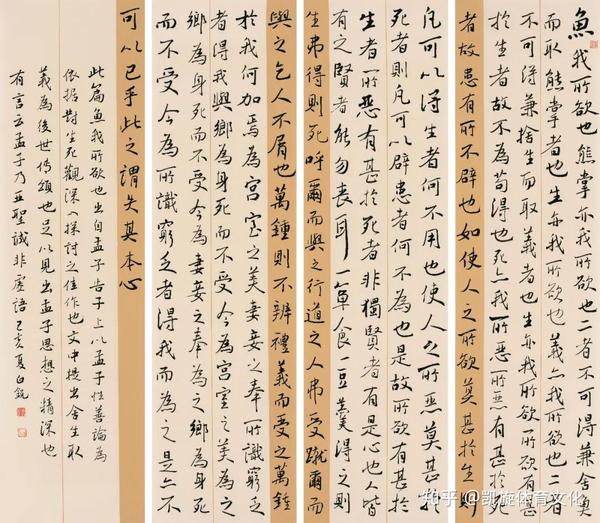 魚我所欲也熊掌亦我所欲也二者不可得兼舍魚
而取熊掌者也生亦我所欲也義亦我所欲也二者
不可得兼捨生而取義者也生亦我所欲所欲有甚
於生者故不為苟得也死亦我所惡所惡有甚於死
者故患有所不辟也如使人之所欲莫甚於生則
凡可以得生者何不用也使人之所惡莫甚於
死者則凡可以辟患者何不為也是故所欲有甚於
生者所惡有甚於死者非獨賢者有是心也人皆
有之賢者能勿喪耳一簞食一豆羹得之則
生弗得則死呼爾而與之行道之人弗受蹴爾而
與之乞人不屑也萬鍾則不辨禮義而受之萬鍾
於我何加焉為宮室之美妻妾之奉所識窮乏
者得我與鄉為身死而不受今為宮室之美為之
鄉為身死而不受今為妻妾之奉為之鄉為身死
而不受今為所識窮乏者得我而為之是亦不
可以已乎此之謂失其本心
此篇魚我所欲也出自孟子告子上以孟子性善論為
依据對生死觀深入探討之佳作也文中提出舍生取
義為後世傳頌也足以見出孟子思想之精深也
有言云孟子乃亚聖誠非虛語 己亥夏白銳
知乎 @凯旋体育文化